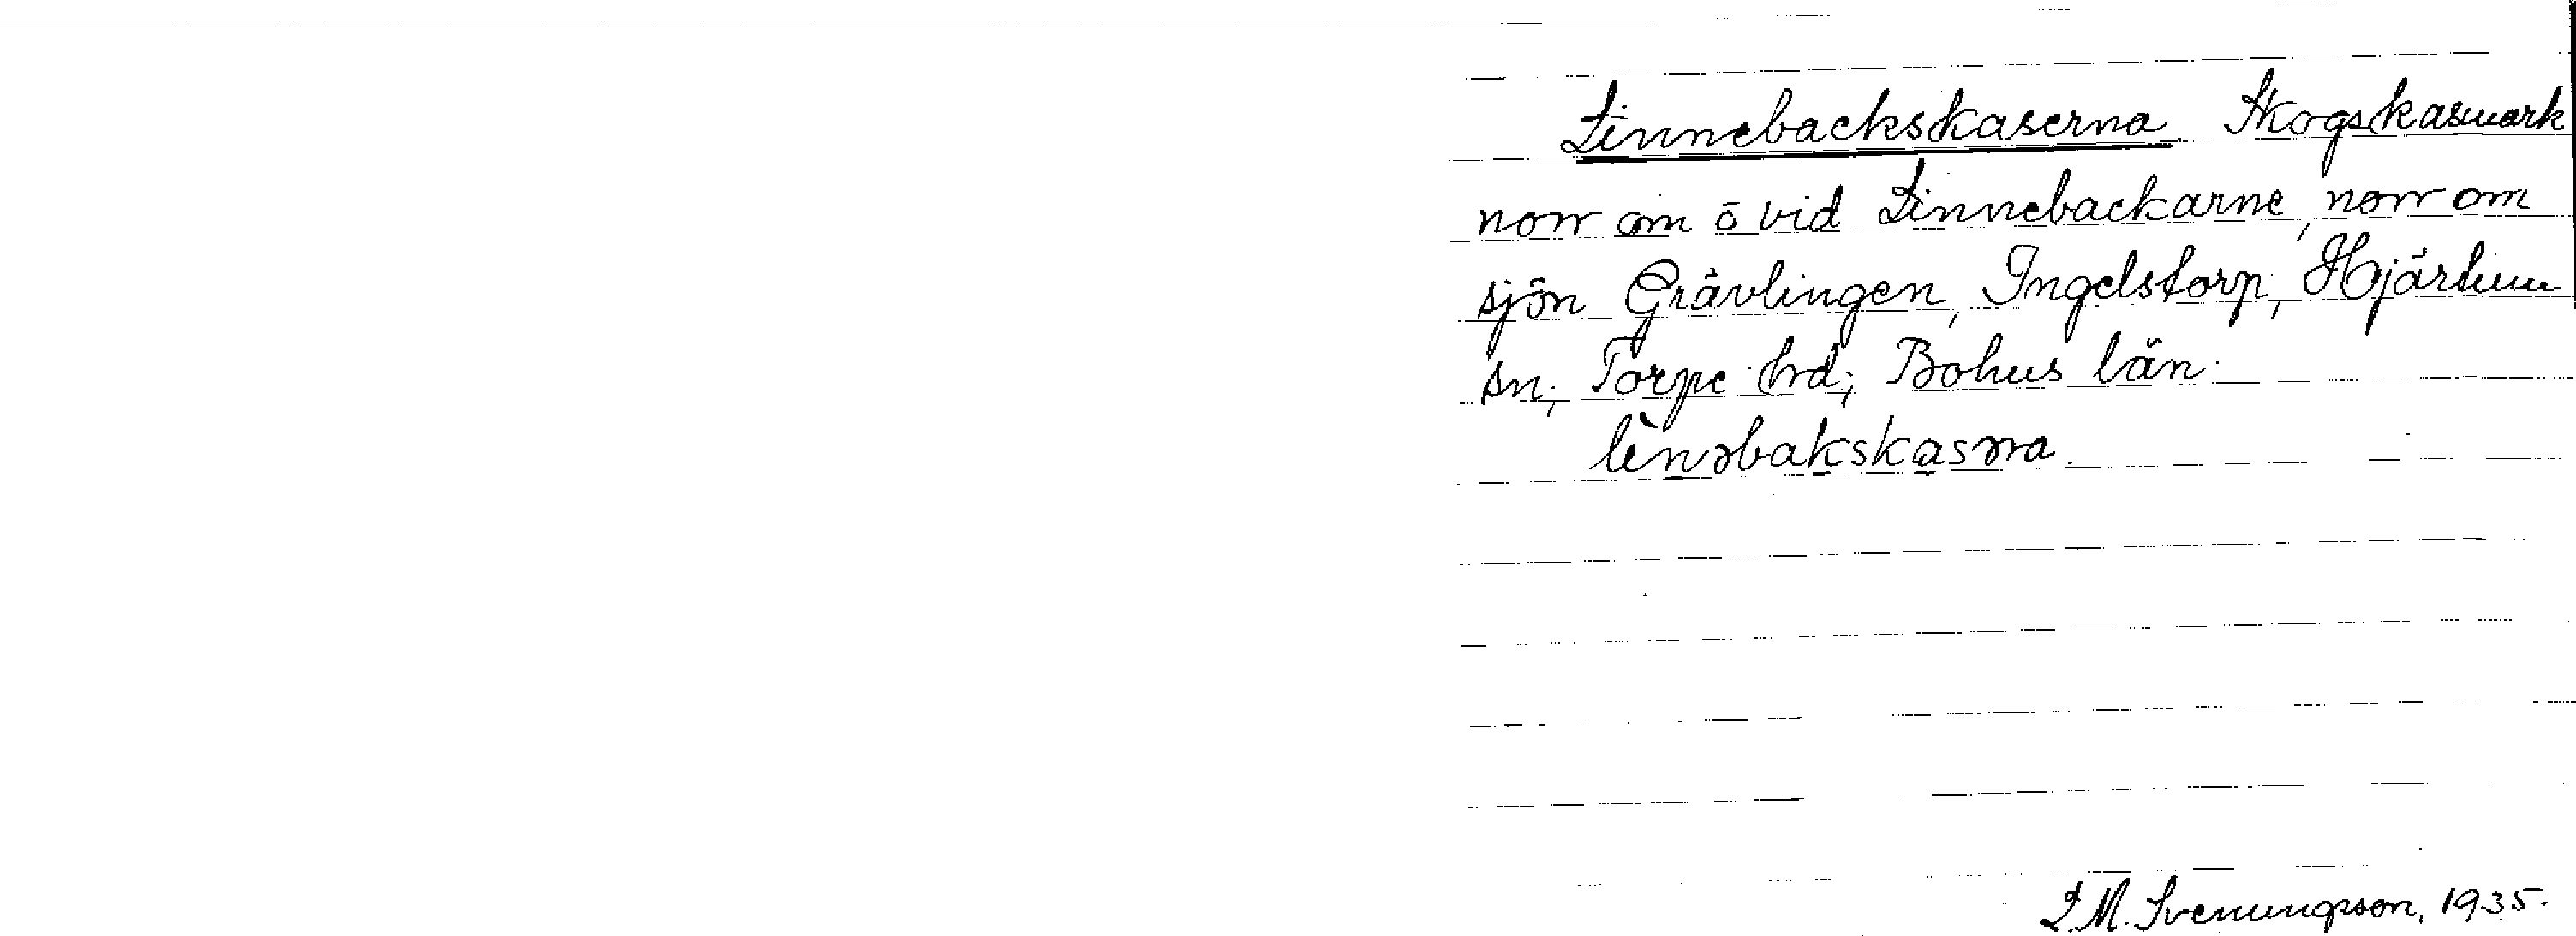 Linnebackskaserna Skogskasmark
norr om ō vid Linnebackarne, norr om
sjön Grävlingen, Ingelstorp, Hjärtum
sn; Torpe hrd; Bohus län.
lènəbakskasəra
L M. Svenungsson, 1935.